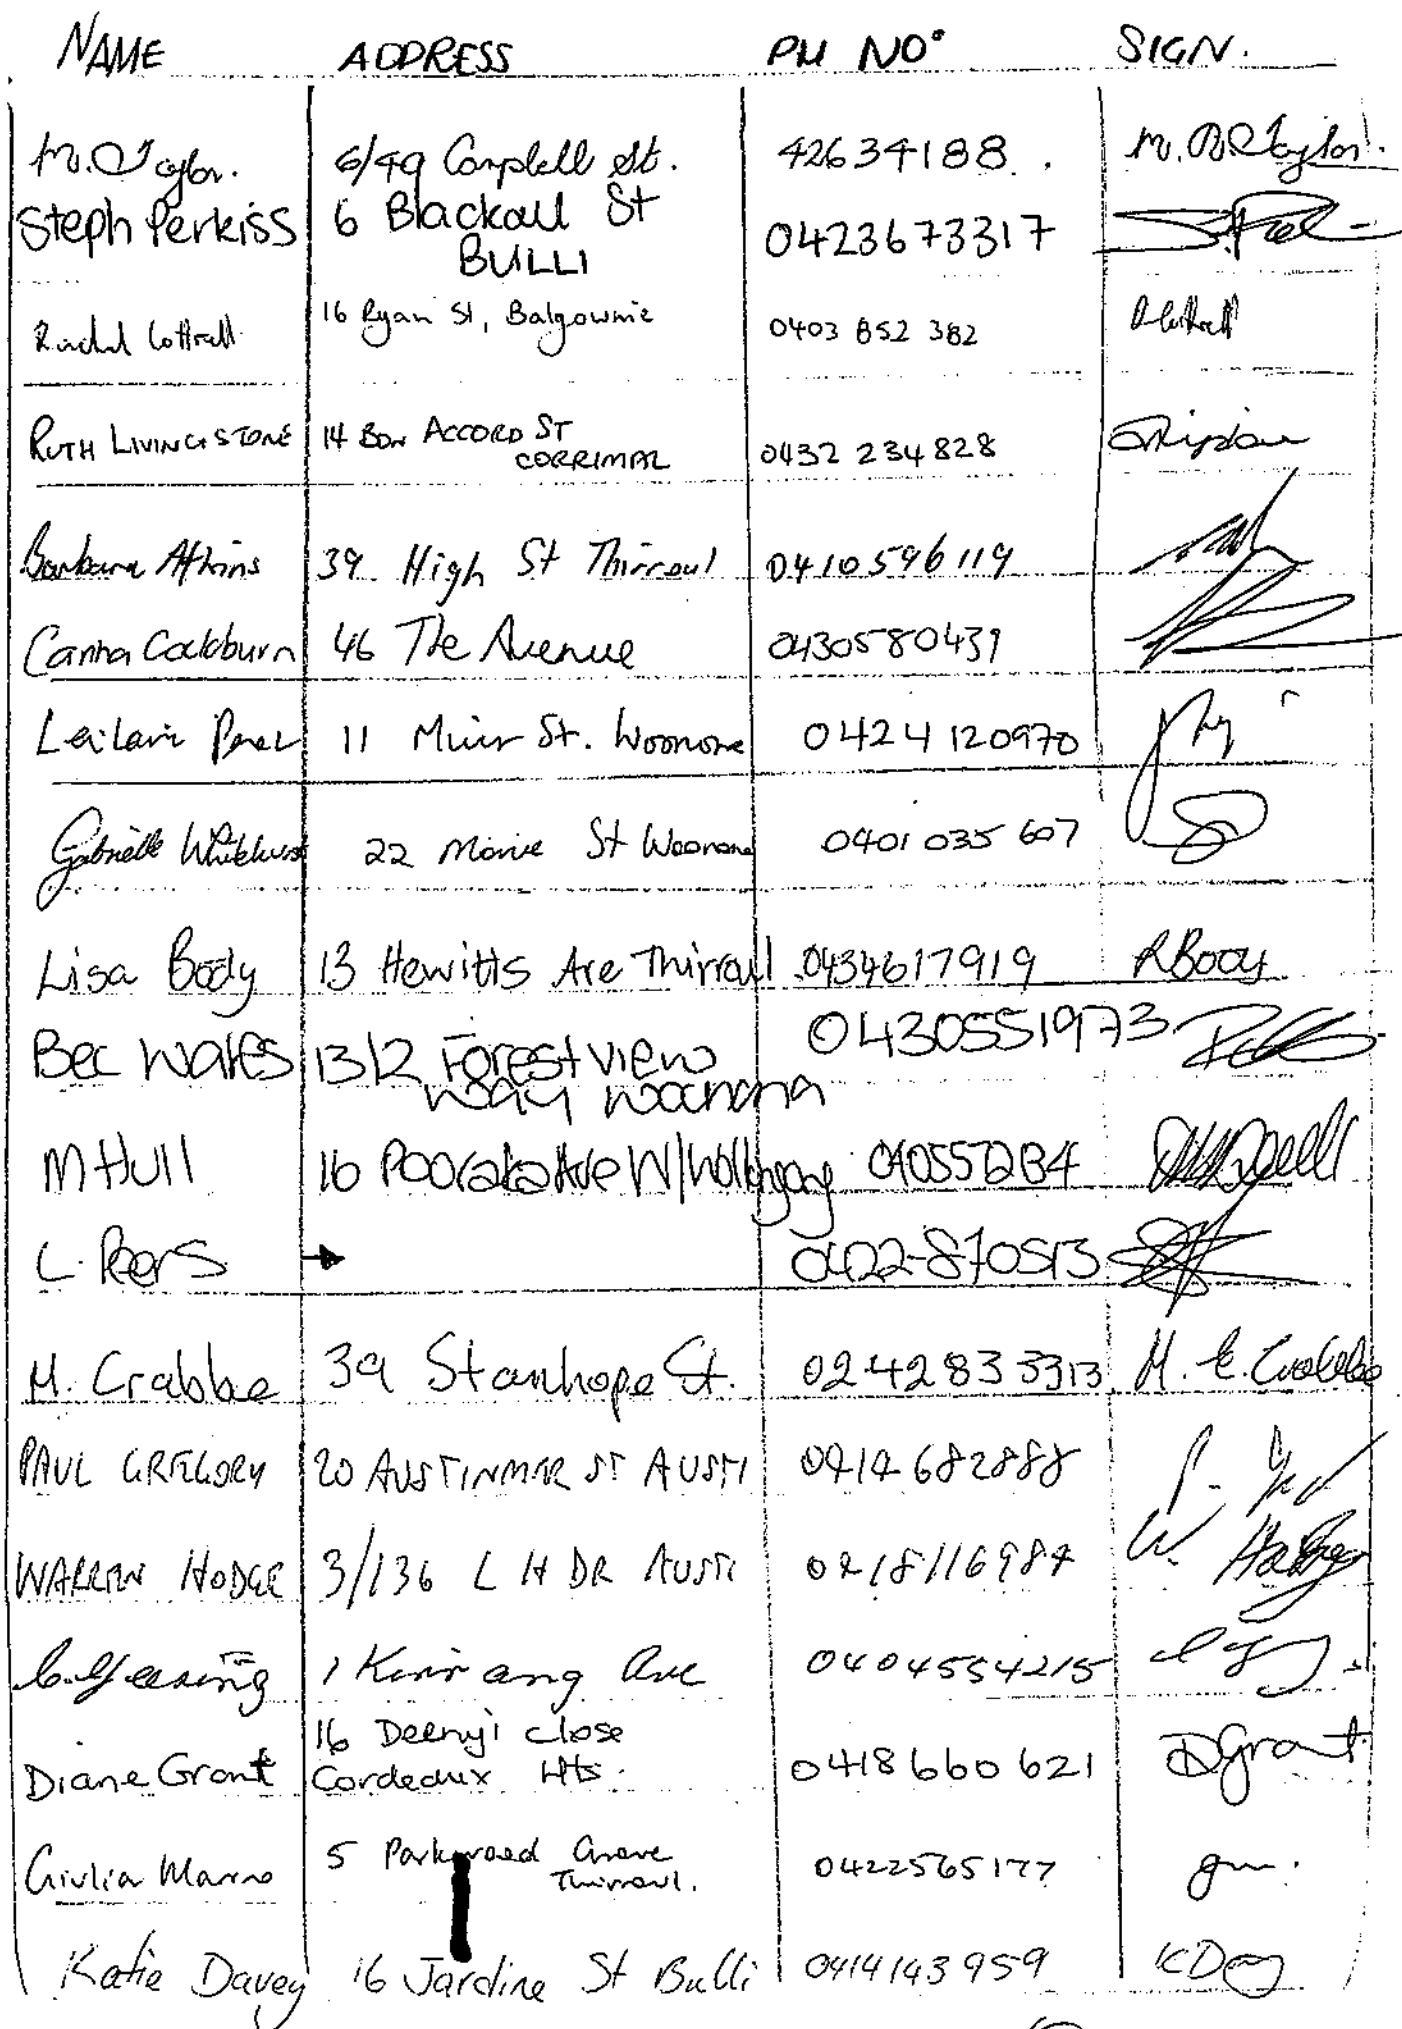 NAME ADDRESS PH NO° SIGN.
M. Taylor. 6/49 Campbell St. 42634188. M. R. Taylor.
Steph Perkiss 6 Blackall St
BULLI 0423673317
Rachel Cottrell 16 Ryan St, Balgownie 0403 852 382 RCottrell
RUTH LIVINGSTONE 14 BON ACCORD ST
CORRIMAL 0432 234 828
Barbara Atkins 39 High St Thirroul 0410596119
Carina Cockburn 46 The Avenue 0430580439
Leilani Perez 11 Muir St. Woonona 0424120970
Gabrielle Whitehurst 22 Marie St Woonona 0401 035 607
Lisa Body 13 Hewitts Ave Thirroul 0434617919 RBody
Bec Wales 13/2 Forestview
Way Woonona 0430551973
M Hull 16 Pooraka Ave W/Wollongong
L. Peers → 0422-870513
M. Crabbe 39 Stanhope St. 0242833313 M. E. Crabbe
PAUL GREGORY 20 AUSTINMER ST AUSTI 0414682888
WARREN HODGE 3/136 L H DR AUSTI 0418116984 W. Hodge
1 Kurrang Ave 0404554215
Diane Grant 16 Deenyi Close
Cordeaux Hts. 0418 660 621 DGrant
Giulia Marro 5 Parkwood Grove
Thirroul. 0422565177 gm.
Katie Davey 16 Jardine St Bulli 0414143959 KDavey